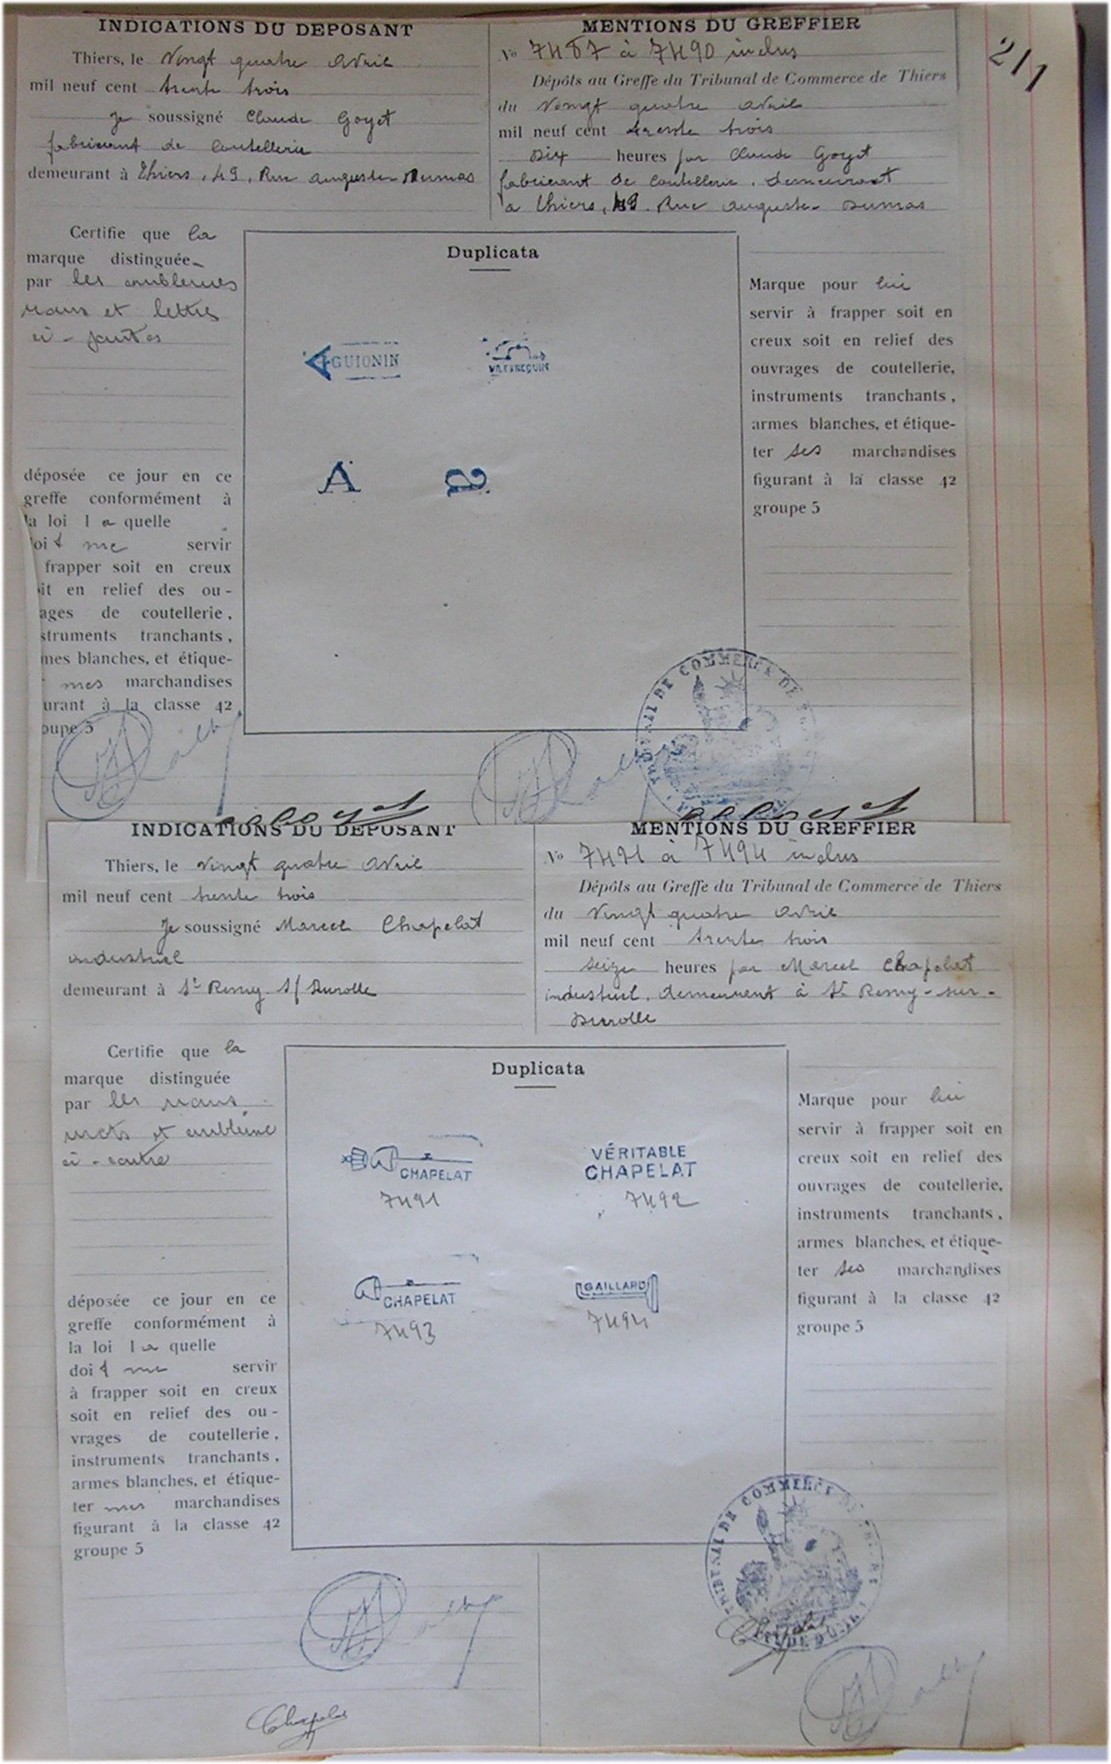 211
INDICATIONS DU DEPOSANT
Thiers, le Vingt quatre Avril
mil neuf cent trente trois
Je soussigné Claude Goyet
fabricant de coutellerie
demeurant à Thiers, 49, Rue Auguste Dumas
MENTIONS DU GREFFIER
No 7487 à 7490 inclus
Dépôts au Greffe du Tribunal de Commerce de Thiers
du Vingt quatre avril
mil neuf cent trente trois
Dix heures par Claude Goyet
fabricant de coutellerie, demeurant
à Thiers, 49 Rue Auguste Dumas
Certifie que la
marque distinguée
par les emblemes
noms et lettres
ci-joints
déposée ce jour en ce
greffe conformément à
la loi laquelle
doit me servir
frapper soit en creux
it en relief des ou-
ages de coutellerie,
struments tranchants,
mes blanches, et étique-
mes marchandises
urant à la classe 42
oupe 5
Duplicata
A GUIONIN
A
a
Marque pour lui
servir à frapper soit en
creux soit en relief des
ouvrages de coutellerie,
instruments tranchants,
armes blanches, et étique-
ter ses marchandises
figurant à la classe 42
groupe 5
TRIBUNAL DE COMMERCE DE
INDICATIONS DU DEPOSANT
Thiers, le vingt quatre avril
mil neuf cent trente trois
Je soussigné Marcel Chapelat
industriel
demeurant à St Remy s/ Durolle
MENTIONS DU GREFFIER
No 7491 à 7494 inclus
Dépôts au Greffe du Tribunal de Commerce de Thiers
du Vingt quatre avril
mil neuf cent trente trois
seize heures par Marcel Chapelat
industriel, demeurant à St Remy-sur-
Durolle
Certifie que la
marque distinguée
par les noms
mots et emblème
ci-contre
déposée ce jour en ce
greffe conformément à
la loi laquelle
doit me servir
à frapper soit en creux
soit en relief des ou-
vrages de coutellerie,
instruments tranchants,
armes blanches, et étique-
ter mes marchandises
figurant à la classe 42
groupe 5
Duplicata
CHAPELAT
7491
VÉRITABLE
CHAPELAT
7492
CHAPELAT
7493
GAILLARD
7494
Marque pour lui
servir à frapper soit en
creux soit en relief des
ouvrages de coutellerie,
instruments tranchants,
armes blanches, et étique-
ter ses marchandises
figurant à la classe 42
groupe 5
TRIBUNAL DE COMMERCE DE
Chapelat